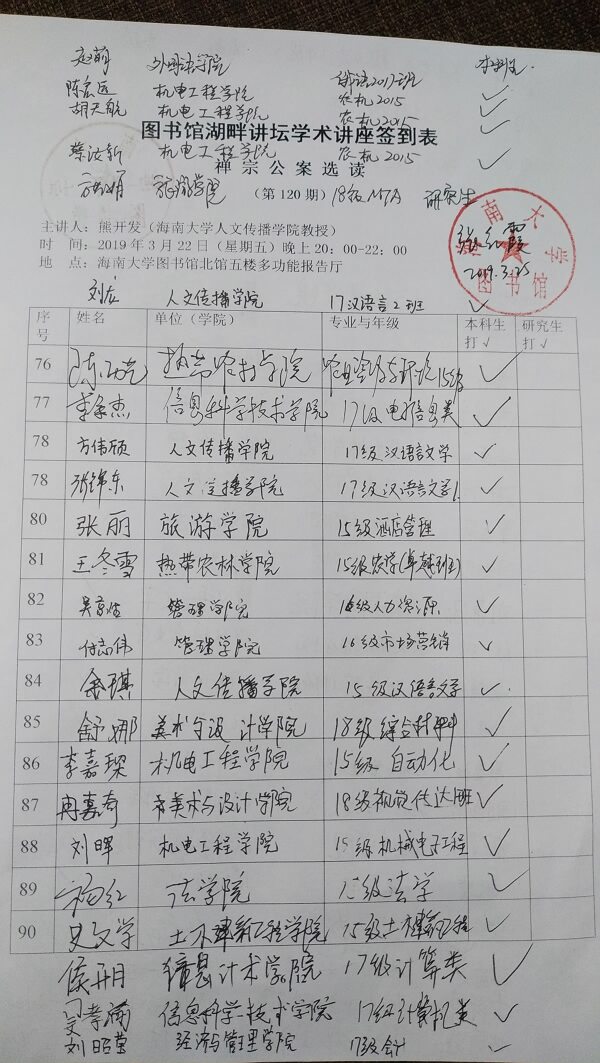 赵萌 外国语学院 俄语2017-班 本科生
陈宏 机电工程学院 农机2015 ✓
胡天航 机电工程学院 农机2015 ✓
图书馆湖畔讲坛学术讲座签到表
蔡汝新 机电工程学院 农机2015 ✓
禅宗公案选读
旅游学院 (第120期) 18级MTA 研究生
主讲人:熊开发(海南大学人文传播学院教授)
时 间:2019年3月22日(星期五)晚上20:00-22:00
地 点:海南大学图书馆北馆五楼多功能报告厅
海南大学图书馆
张红霞
2019.3.25
刘 人文传播学院 17汉语言2班 ✓
序号 姓名 单位(学院) 专业与年级 本科生打√ 研究生打√
76 陈 热带农林学院 15级 ✓
77 李 杰 信息科学技术学院 17级电子信息类 ✓
78 方伟硕 人文传播学院 17级汉语言文学 ✓
78 张锦东 人文传播学院 17级汉语言文学 ✓
80 张丽 旅游学院 15级酒店管理 ✓
81 王冬雪 热带农林学院 15级农学(卓越班) ✓
82 吴 管理学院 16级人力资源 ✓
83 付志伟 管理学院 16级市场营销 ✓
84 余琪 人文传播学院 15级汉语言文学 ✓
85 舒娜 美术与设计学院 18级综合材料 ✓
86 李嘉琛 机电工程学院 15级自动化 ✓
87 冉嘉奇 美术与设计学院 18级视觉传达班 ✓
88 刘晖 机电工程学院 15级机械电子工程 ✓
89 杨红 法学院 15级法学 ✓
90 史文学 土木建筑工程学院 15级土木建筑工程 ✓
侯丹 学院 17级计算类 ✓
信息科学技术学院 17级计算机类 ✓
刘昭莹 经济与管理学院 17级会计 ✓